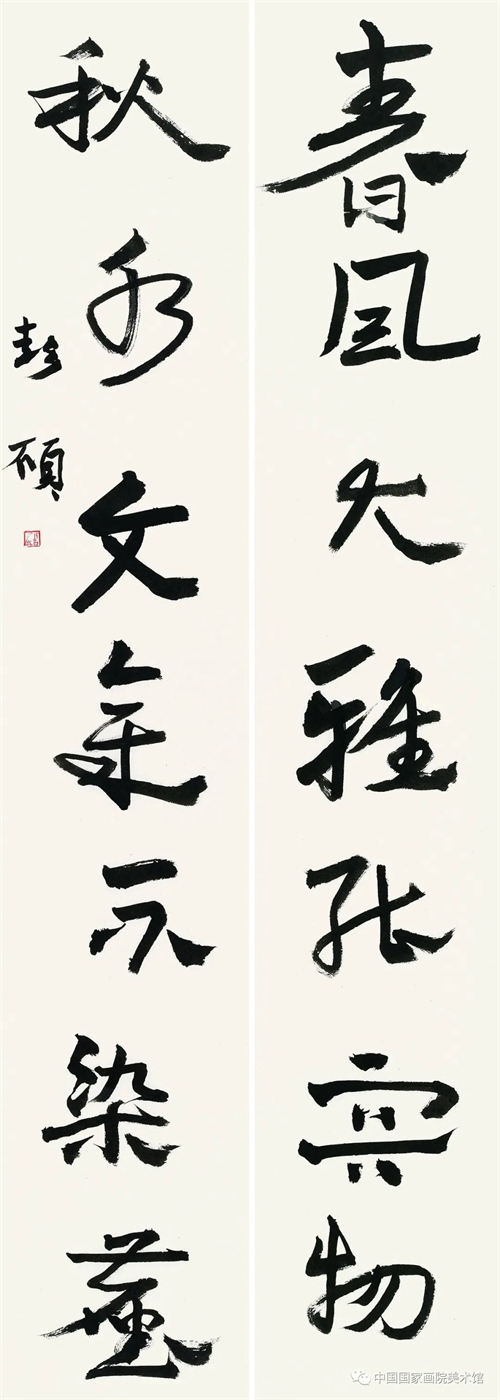 春风大雅能容物
秋水文章不染尘
彭硕
中国国家画院美术馆